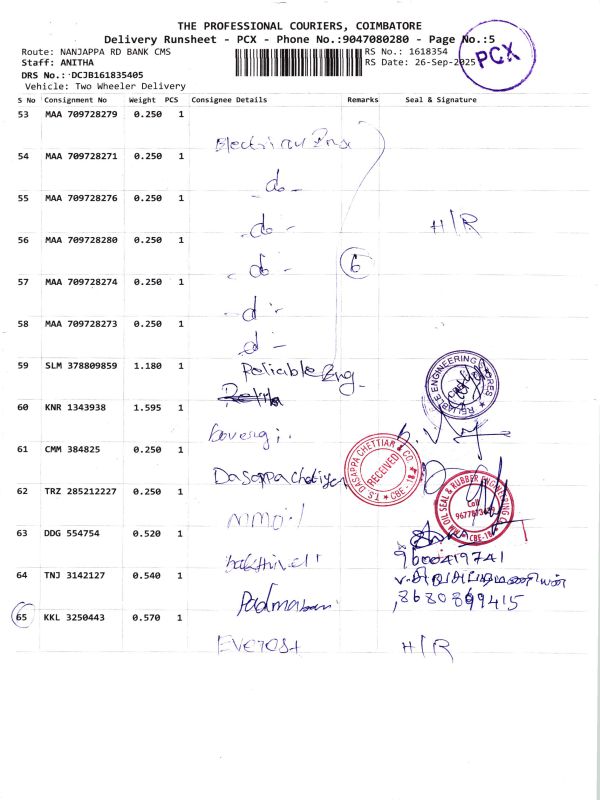 THE PROFESSIONAL COURIERS, COIMBATORE
Delivery Runsheet - PCX - Phone No.:9047080280 - Page No.:5
Route: NANJAPPA RD BANK CMS RS No.: 1618354
Staff: ANITHA RS Date: 26-Sep-2025
PCX
DRS No.: DCJB161835405
Vehicle: Two Wheeler Delivery
S No Consignment No Weight PCS Consignee Details Remarks Seal & Signature
53 MAA 709728279 0.250 1
54 MAA 709728271 0.250 1
-do-
55 MAA 709728276 0.250 1
-do- H/R
56 MAA 709728280 0.250 1
-do- 6
57 MAA 709728274 0.250 1
58 MAA 709728273 0.250 1
59 SLM 378809859 1.180 1
Reliable Eng
RELIABLE ENGINEERING STORES
60 KNR 1343938 1.595 1
61 CMM 384825 0.250 1
T.S. DASAPPA CHETTIAR & CO. RECEIVED CBE-18
Dasappa Chetiyar
62 TRZ 285212227 0.250 1
OIL SEAL & RUBBER ENGINEERING CBE-18
63 DDG 554754 0.520 1
9600419741
64 TNJ 3142127 0.540 1
Padmaban 8680899415
65 KKL 3250443 0.570 1
EVEREST H/R